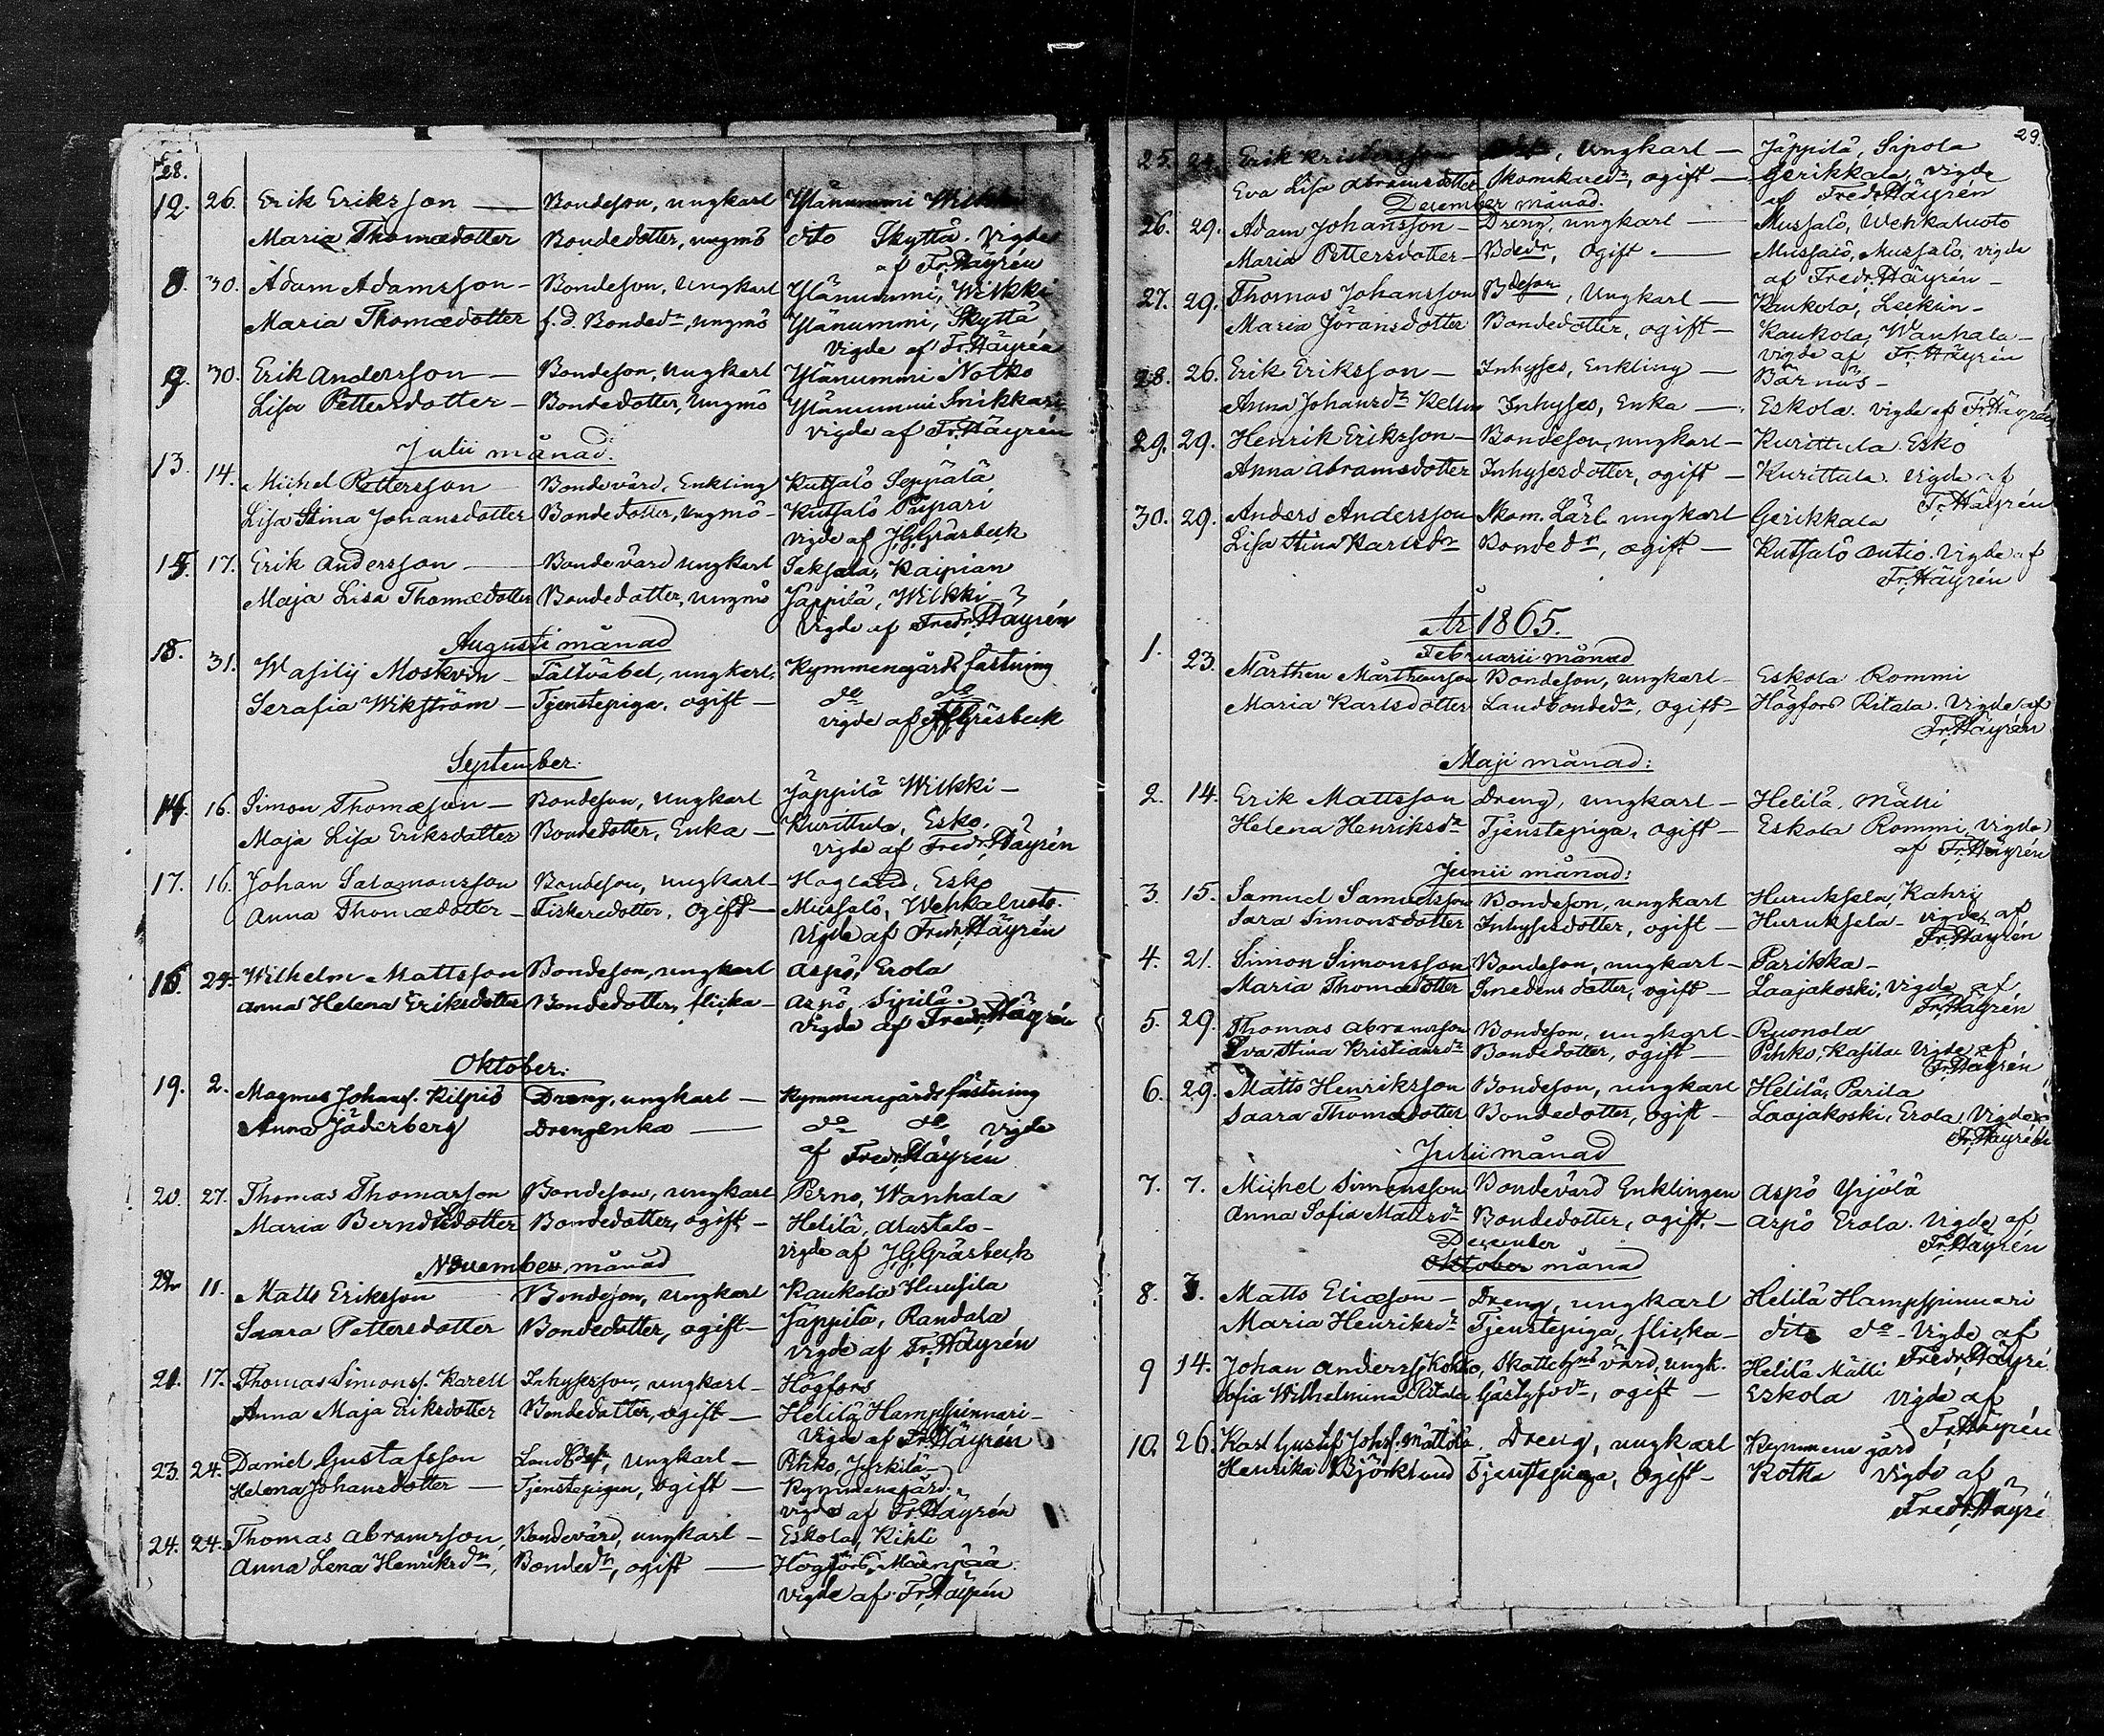 28.
12. 26. Erik Eriksson — Bondeson, ungkarl Ylänummi Wilkki
Maria Thomædotter Bondedotter, ungmö dito Skyttä. Vigde
af Fr. Häyrén
8. 30. Adam Adamsson — Bondeson, ungkarl Ylänummi, Wilkki
Maria Thomædotter f.d. Bondedr, ungmö Ylänummi, Skyttä
Vigde af Fr. Häyrén
9. 30. Erik Andersson — Bondeson, ungkarl Ylänummi Notko
Lisa Pettersdotter — Bondedotter, Ungmö Ylänummi Snikkari
vigde af Fr. Häyrén
Julii månad:
13. 14. Michel Pettersson Bondevärd, Enkling Kutsalö Seppälä
Lisa Stina Johansdotter Bondedotter, ungmö — Kutsalö Paspari
vigde af J.G. Gräsbeck
15. 17. Erik Andersson — Bondevärd ungkarl Saksala, Kaipian
Maja Lisa Thomædotter Bondedotter, ungmö Jäppilä, Wilkki
Vigde af Fredr. Häyrén
Augusti månad
18. 31. Wasilij Moskvin — Fältväbel, ungkarl, Kymmenegårds fästning
Serafia Wikström — Tjenstepiga, ogift — do do
vigde af J.G. Gräsbeck
September:
14. 16. Simon Thomæson — Bondeson, ungkarl Jäppilä Wilkki —
Maja Lisa Eriksdotter Bondedotter, Enka — Kurittula, Esko,
vigde af Fredr. Häyrén
17. 16. Johan Salamonsson Bondeson, ungkarl — Hogland, Esko
Anna Thomædotter — Fiskaredotter, ogift — Mussalö, Wehkaluoto.
Vigde af Fredr. Häyrén
16. 24. Wilhelm Mattsson Bondeson, ungkarl Aspö, Erola
Anna Helena Eriksdotter Bondedotter, flicka — Aspö Sipilä.
Vigde af Fredr. Häyrén
Oktober:
19. 2. Magnus Johans. Kilpiö Dreng, ungkarl — Kymmenegårds fästning
Anna Jäderberg Drengenka — do do vigde
af Fredr. Häyrén
20. 27. Thomas Thomasson Bondeson, ungkarl Perno, Wanhala
Maria Berndtsdotter Bondedotter, ogift — Helilä, Alastalo —
vigde af J.G. Gräsbeck
November månad
22. 11. Matts Eriksson Bondeson, ungkarl Kaukola Huusila
Saara Pettersdotter Bondedotter, ogift — Jäppilä, Randala
vigde af Fr. Häyrén
21. 17. Thomas Simons. Karell Inhysesson, ungkarl — Högfors
Anna Maja Eriksdotter Bondedotter, ogift — Helilä Hampspinnari —
Vigde af Fr. Häyrén
23. 24. Daniel Gustafsson ungkarl — Pihko, Jyrkilä —
Helena Johansdotter — Tjenstepigan, ogift — Kymmenegård.
vigde af Fr. Häyrén
24. 24. Thomas Abramsson, Bondevärd, ungkarl — Eskola, Kihli
Anna Lena Henriksdr, Bondedr, ogift — Högfors,
vigde af Fr. Häyrén
29.
25. 24. Erik ungkarl — Jäppilä, Sipola
Eva Lisa Abramsdotter Skomakaredr, ogift — Gerikkala, vigde
af Fredr. Häyrén
December månad.
26. 29. Adam Johansson — Dreng, ungkarl — Mussalö, Wehkaluoto
Maria Pettersdotter — Bdedr, ogift. — Mussalö, Mussalö, vigde
af Fredr. Häyrén —
27. 29. Thomas Johansson Bdeson, Ungkarl — Kaukola, Leikin —
Maria Jöransdotter Bondedotter, ogift — Kaukola, Wanhala —
vigde af Fr. Häyrén
28. 26. Erik Eriksson — Inhyses, Enkling — Bärnäs —
Anna Johansdr Inhyses, Enka — Eskola. vigde af Fr. Häyrén
29. 29. Henrik Eriksson — Bondeson, ungkarl — Kurittula Esko
Anna Abramsdotter Inhysesdotter, ogift — Kurittula. Vigde af
Fr. Häyrén
30. 29. Anders Andersson Skom. Lärl. ungkarl Gerikkala
Lisa Stina Karlsdr Bondedr, ogift — Kutsalö Antio. Vigde af
Fr. Häyrén
År 1865.
Februarii månad
1. 23. Mårthen Mårthensson Bondeson, ungkarl — Eskola Rommi
Maria Karlsdotter Landbondedr, ogift — Högfors Ritala. Vigde af
Fr. Häyrén
Maji månad:
2. 14. Erik Mattsson Dreng, ungkarl — Helilä, Mälli
Helena Henriksdr Tjenstepiga, ogift — Eskola Rommi, vigde
af Fr. Häyrén
Junii månad:
3. 15. Samuel Samuelsson Bondeson, ungkarl Huruksela, Kahri
Sara Simonsdotter Inhysesdotter, ogift — Huruksela — vigde af
Fr. Häyrén
4. 21. Simon Simonsson Bondeson, ungkarl — Parikka —
Maria Thomædotter Smedens dotter, ogift — Laajakoski, vigde af
Fr. Häyrén
5. 29. Thomas Abramsson Bondeson, ungkarl — Ruonala
Eva Stina Kristiansdr Bondedotter, ogift — Pihko, Kasila Vigde af
Fr. Häyrén
6. 29. Matts Henriksson Bondeson, ungkarl Helilä, Parila
Saara Thomædotter Bondedotter, ogift — Laajakoski, Erola, Vigde
Fr. Häyrén
Julii månad
7. 7. Michel Simonsson Bondevärd Enklingen Aspö Yrjölä
Anna Sofia Mattsdr Bondedotter, ogift. — Aspö Erola. Vigde af
Fr. Häyrén
December
Oktober månad
8. 3. Matts Eliæson — Dreng, ungkarl Helilä Hampspinnari
Maria Henriksdr Tjenstepiga, flicka — dito do — Vigde af
Fredr. Häyré
9 14. Johan Anderss. Kokko, värd, ungk. Helilä Mälli
Sofia Wilhelmina Ritala ogift — Eskola vigde af
Fr. Häyrén
10. 26. Karl Gustaf Johss. Mattöla. Dreng, ungkarl Kymmene gård
Henrika Björklund Tjenstepiga, ogift — Kotka Vigde af
Fredr. Häyré